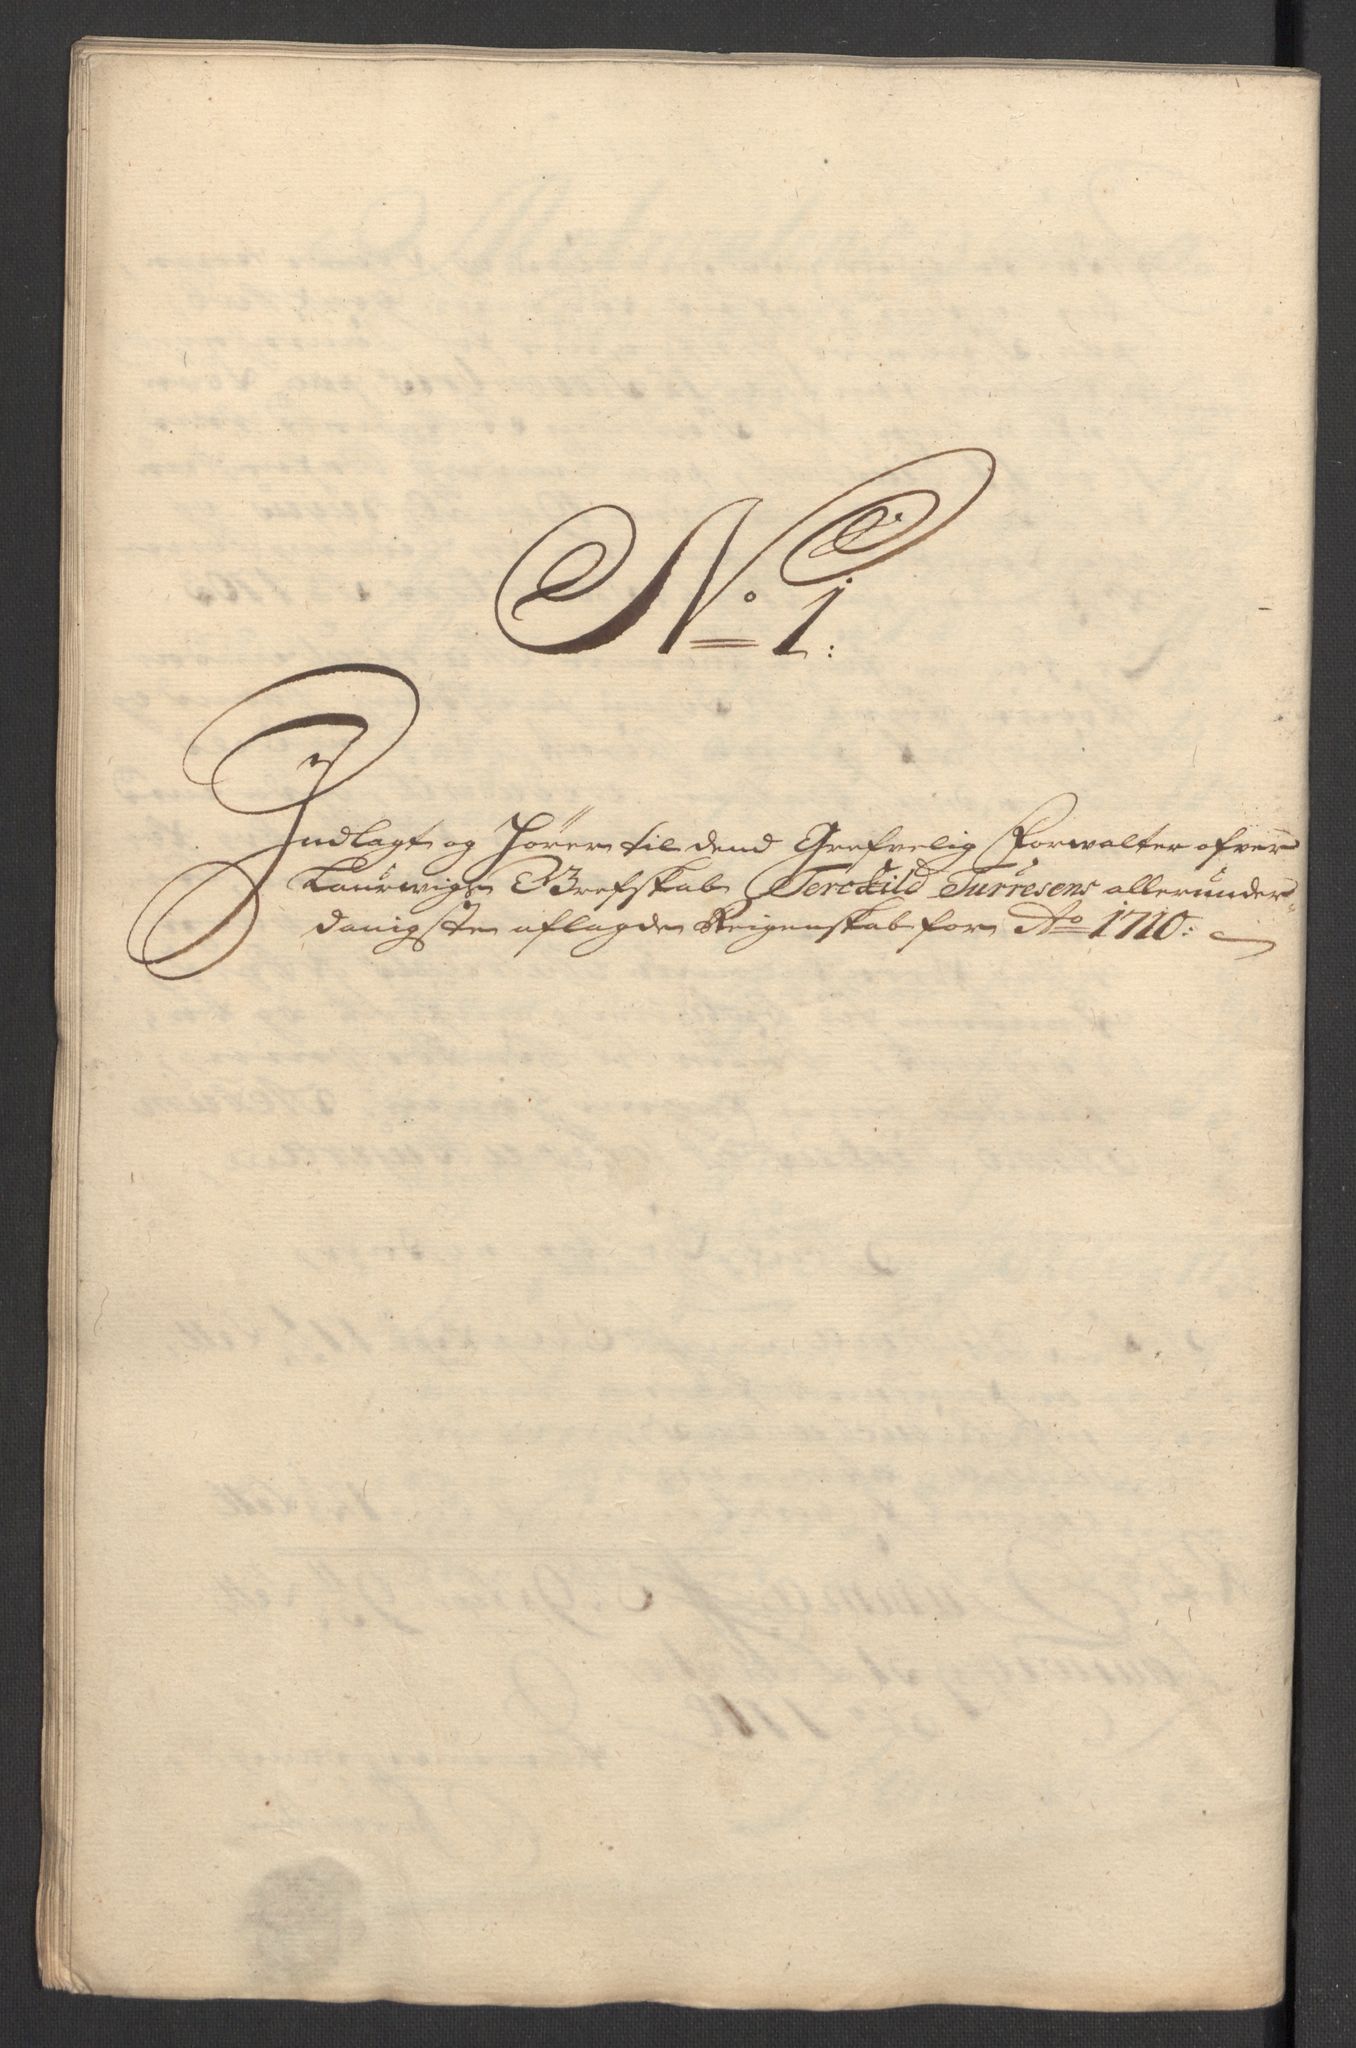 No 1:
Indlagt og Hörer til dend Grefvelig Forwalter ofver
Laürwigs Grefskab Terckild Turresens alleründer-
danigste aflagde Reigenskab for Ao 1710: